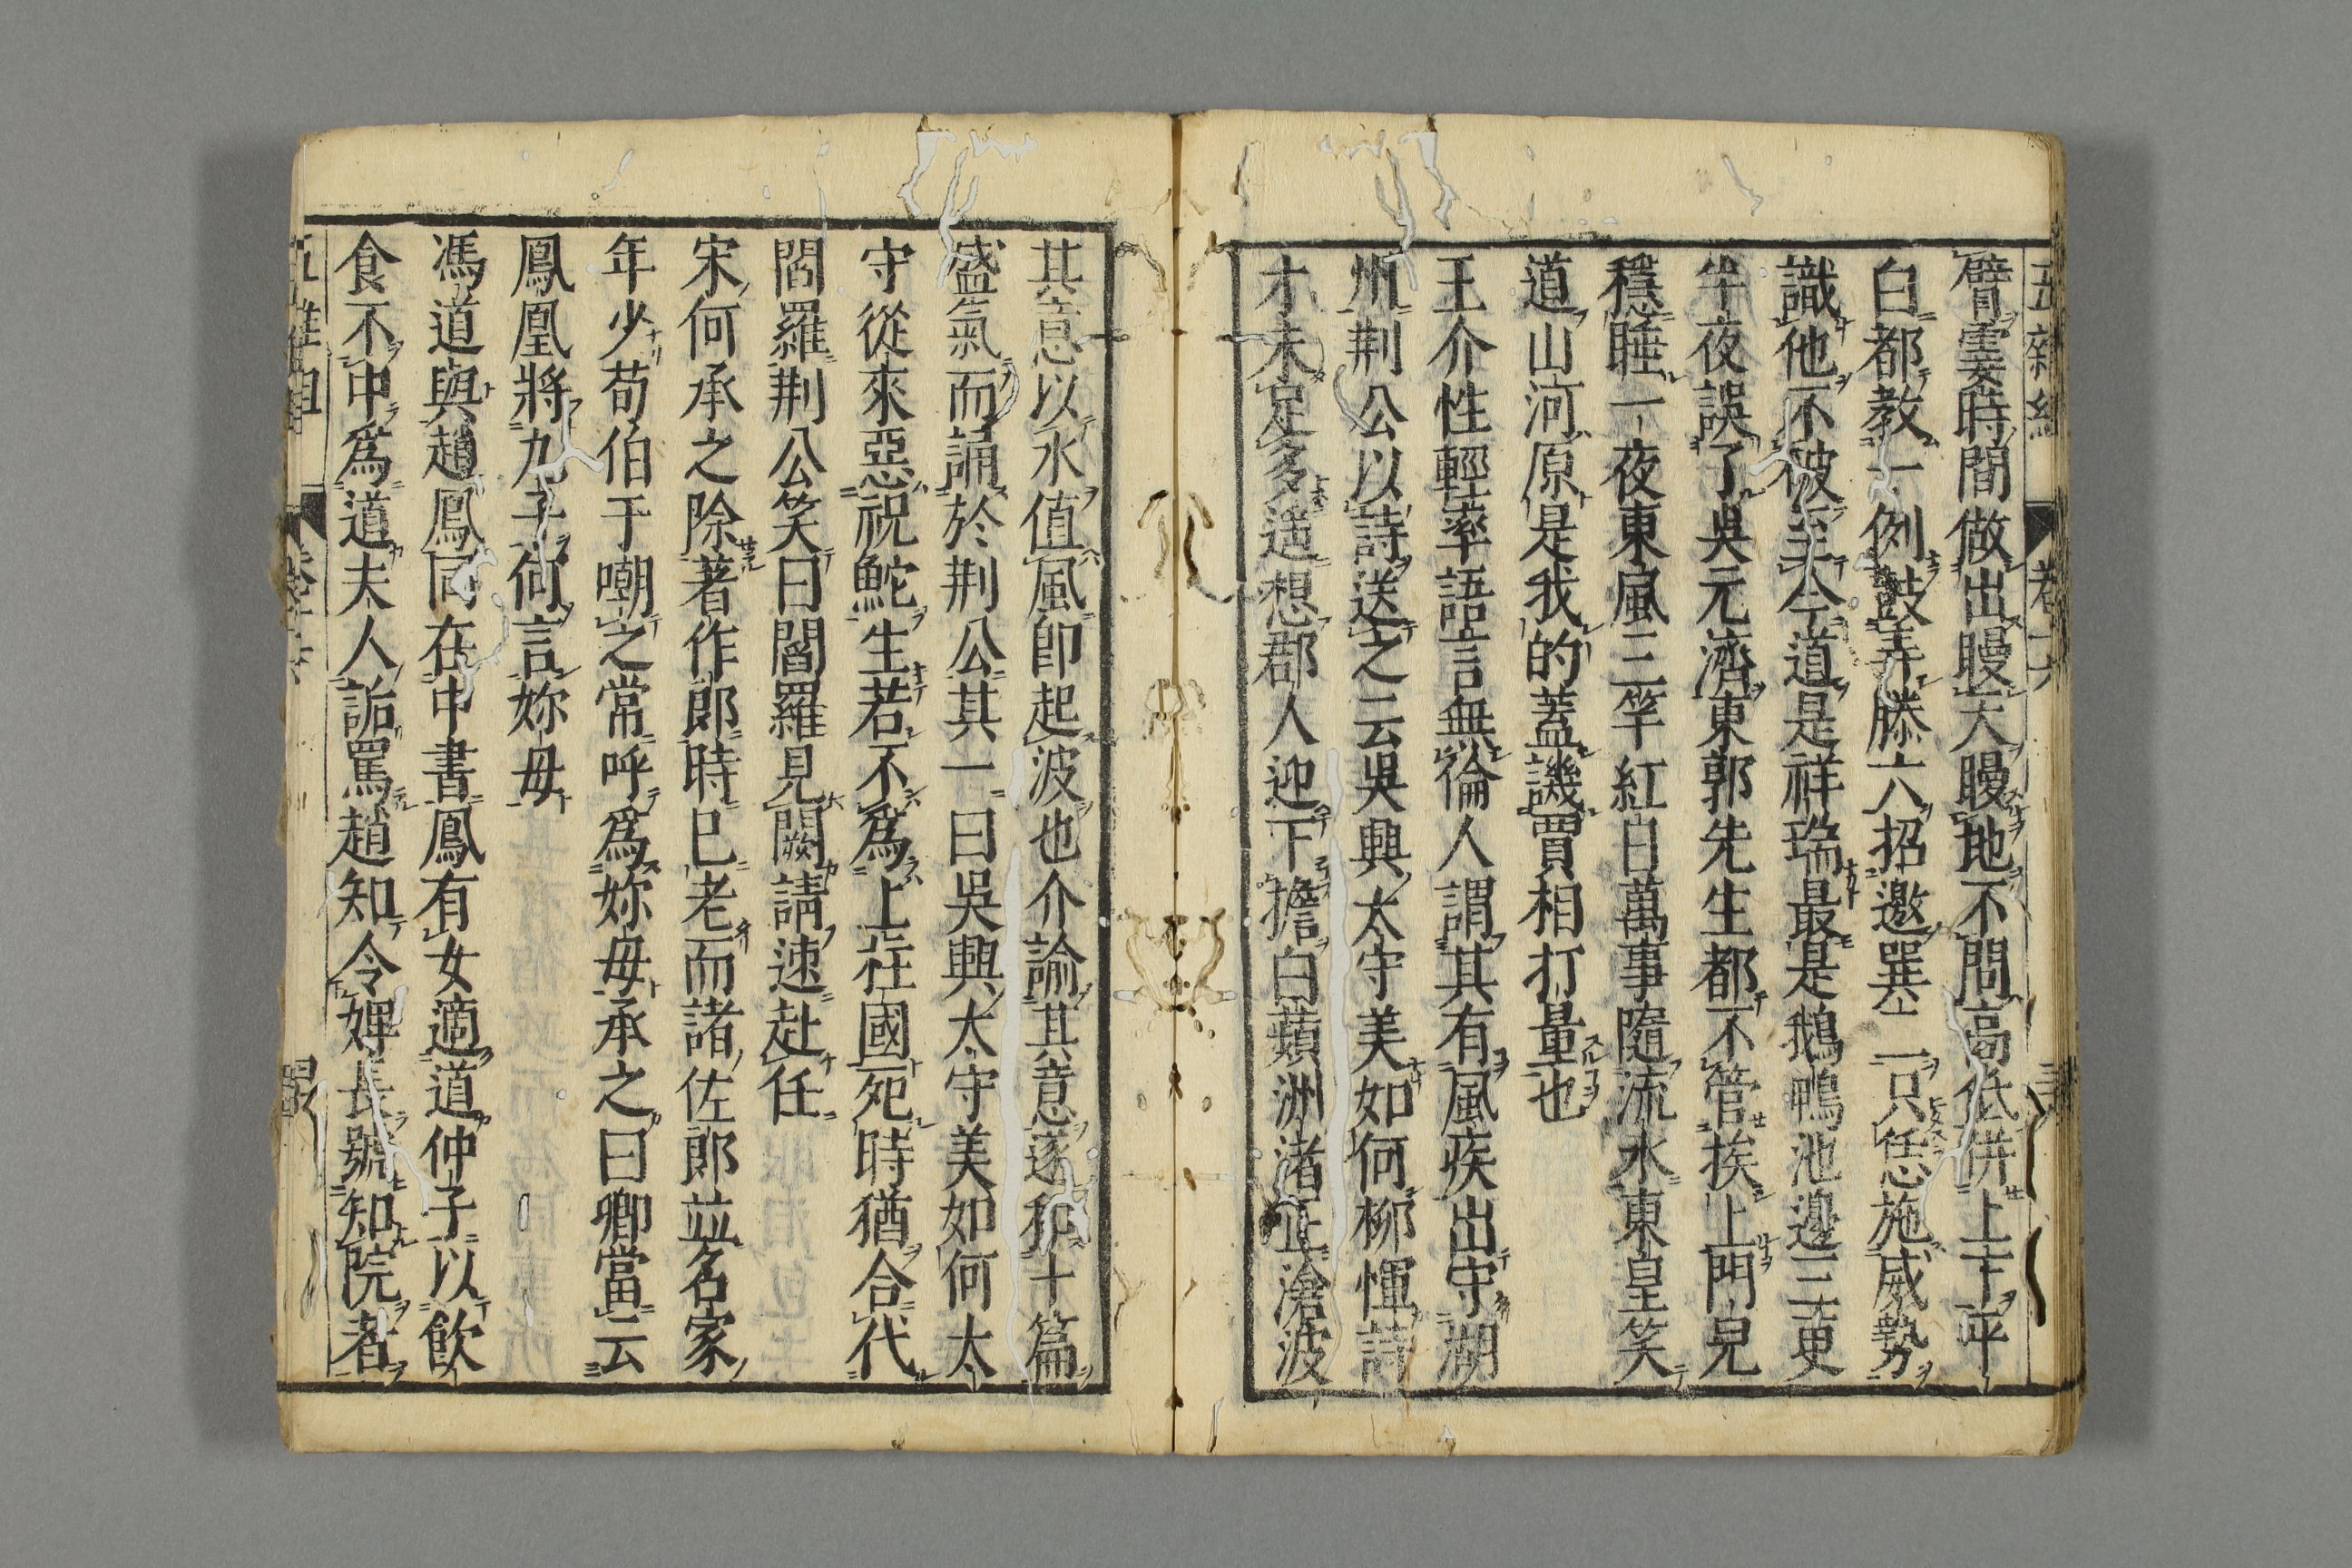 臂霎時間做出瞹天瞹地不問高低併上下平
白都教一例鼓弄滕六招邀巽二只恁施威勢
識他不破至今道是祥瑞最是鵝鴨池邊三更
半夜誤了吳元濟東郭先生都不管挨上門兒
穩睡一夜東風三竿紅日萬事隨流水東皇笑
道山河原是我的蓋譏賈相打量也
王介性輕率語言無倫人謂其有風疾出守湖
州荆公以詩送之云吳興太守美如何柳惲詩
才未足多遥想郡人迎下擔白蘋洲渚正滄波
其意以水值風卽起波也介諭其意遂和十篇
盛氣而誦於荆公其一曰吳興太守美如何太
守從來惡祝鮀生若不爲上柱國死時猶合代
閻羅荆公笑曰閻羅見闕請速赴任
宋何承之除著作郎時已老而諸佐郎並名家
年少荀伯于嘲之常呼爲妳母承之曰卿當云
鳳凰將九子何言妳母
馮道與趙鳳同在中書鳳有女適道仲子以飲
食不中爲道夫人詬罵趙知令婢長號知院者